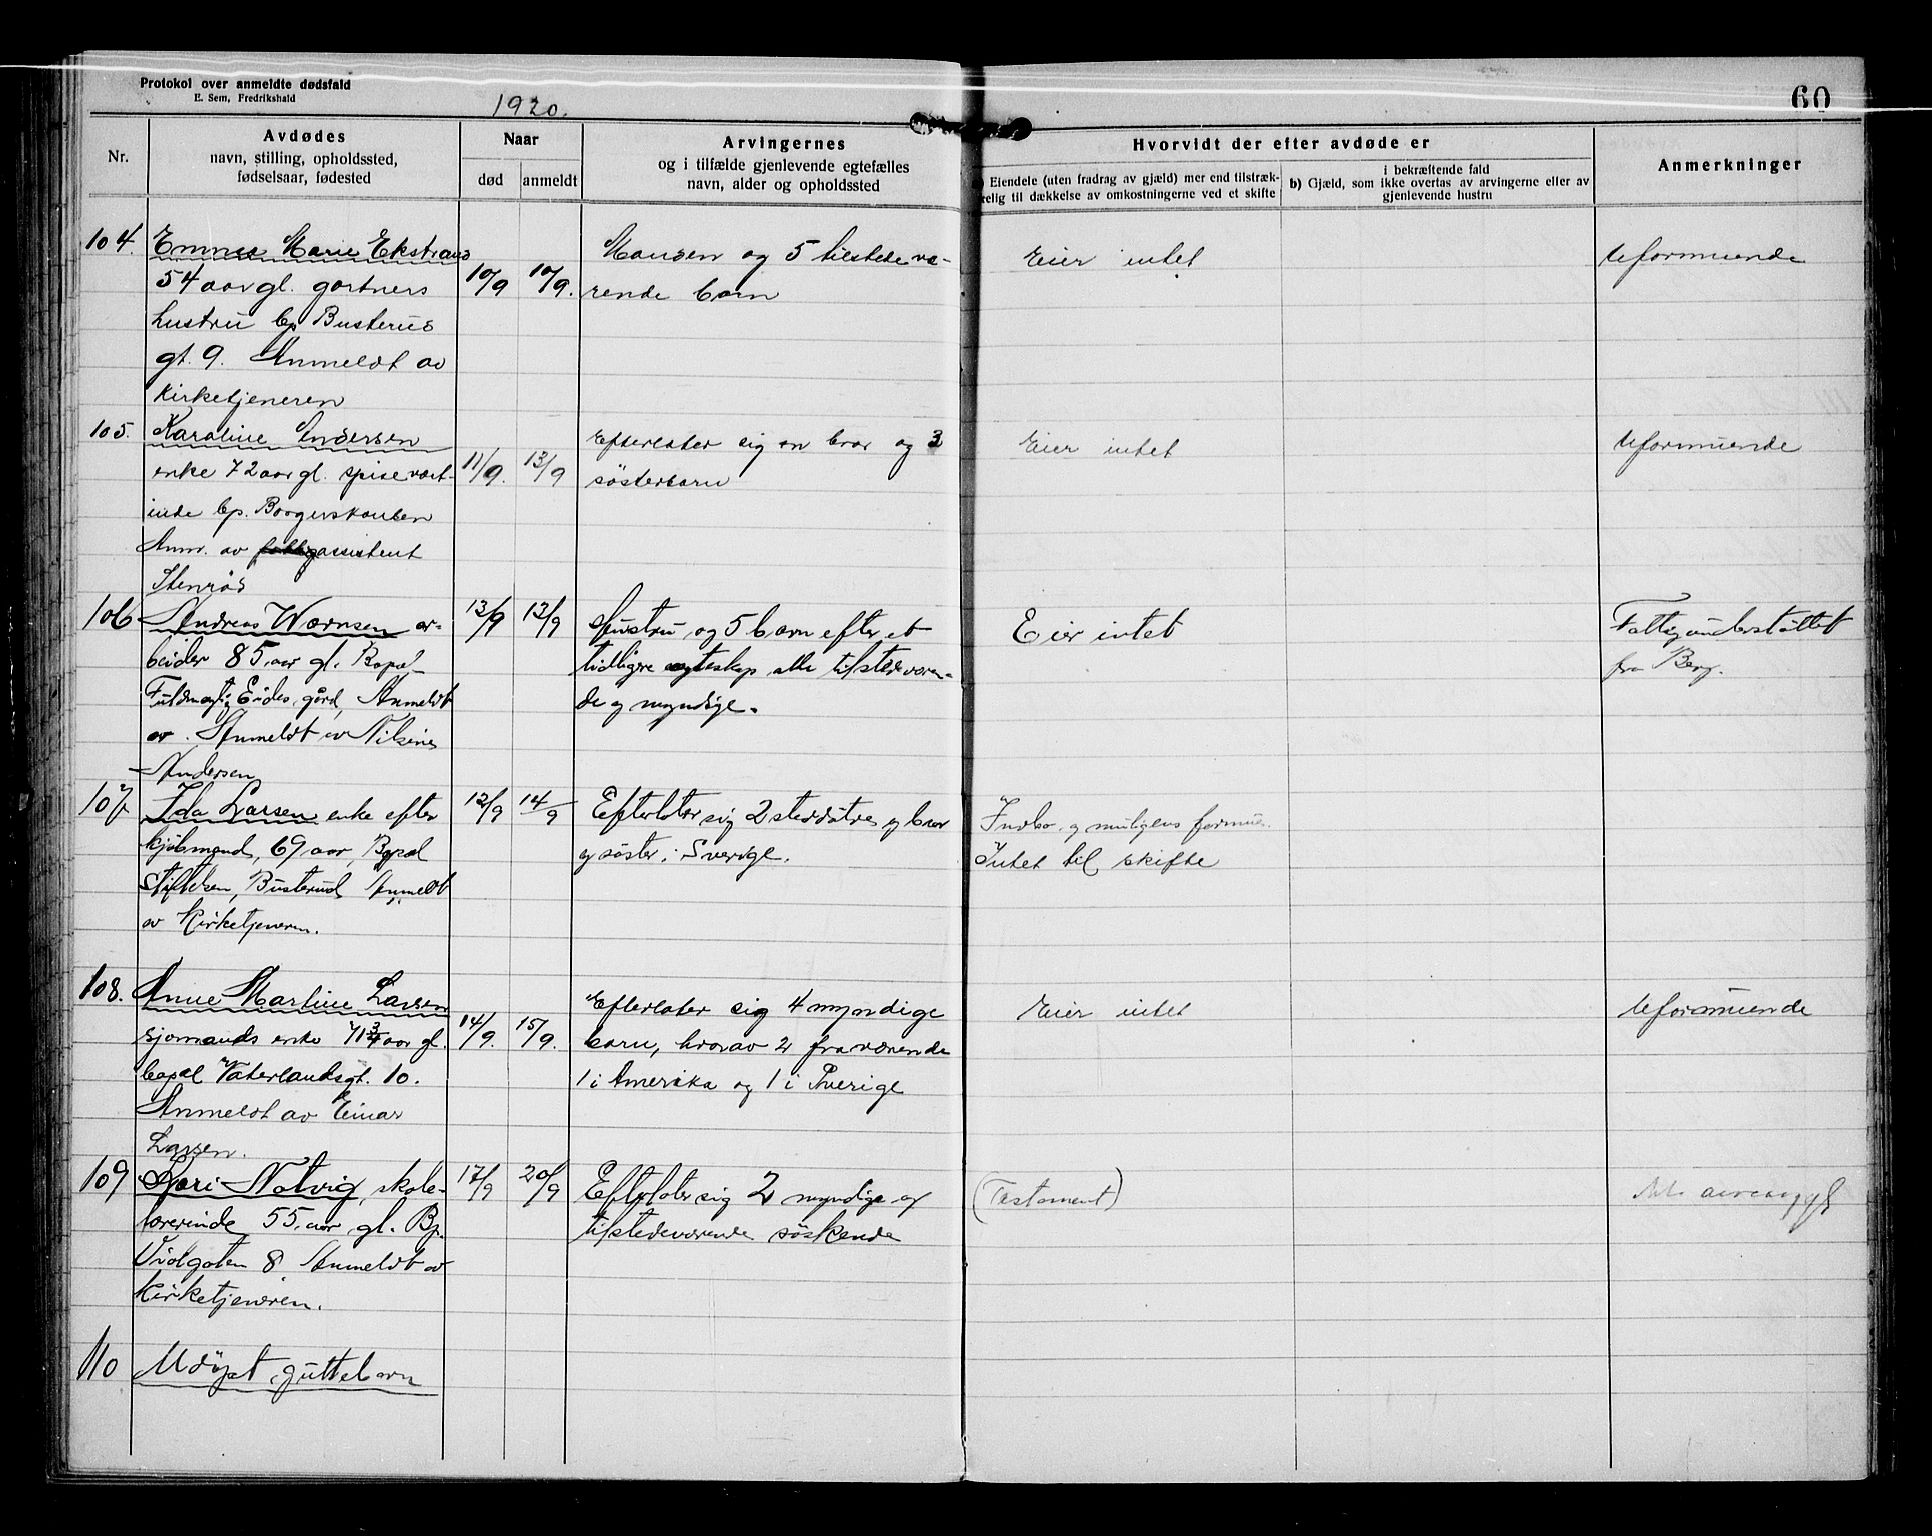 Protokol over anmeldte dødsfald
E. Sem, Fredrikshald
1920.
60
Nr.
Avdødes
navn, stilling, opholdssted,
fødselsaar, fødested
Naar
død
anmeldt
Arvingernes
og i tilfælde gjenlevende egtefælles
navn, alder og opholdssted
Hvorvidt der efter avdøde er
Eiendele (uten fradrag av gjæld) mer end tilstræk-
relig til dækkelse av omkostningerne ved et skifte
i bekræftende fald
b) Gjæld, som ikke overtas av arvingerne eller av
gjenlevende hustru
Anmerkninger
104.
Emma Marie Ekstrand
54 aar gl. gartners
hustru bp Busterud
gt. 9. Anmeldt av
Kirketjeneren
10/9
10/9.
Manden og 5 tilstedevæ-
rende barn
Eier intet
Uformuende
105.
Karoline Andersen
enke 72 aar gl. spisevært-
inde bp. Borgerskanben
Anm. av assistent
Stenrød
11/9.
13/9
Efterlater sig en bror og 3
søsterbarn
Eier intet
Uformuende
106
Andreas Wærnsen ar-
beider 85 aar gl. Bopæl
Fuldmægtig Eides gård, Anmeldt
av. Anmeldt av Nilsine
Andersen
13/9
13/9
Hustru og 5 barn efter et
tidligere egteskap alle tilstedeværen-
de og myndige.
Eier intet
Fattigunderstøttet
fra Berg.
107
Ida Larsen enke efter
kjøbmand, 69 aar, Bopæl
Stiftelsen, Busterud Anmeldt
av Kirketjeneren.
12/9
14/9
Efterlater sig 2 steddøtre og bror
og søster i Sverige.
Indbo og muligens formue.
Intet til skifte
108.
Anne Martine Larsen
sjømands enke 71 3/4 aar gl.
bopæl Vaterlandsgt. 10.
Anmeldt av Einar
Larsen.
14/9.
15/9.
Efterlater sig 4 myndige
barn, hvorav 2 fraværende
1 i Amerika og 1 i Sverige
Eier intet
Uformuende
109
Kari Natvig, skole-
lærerinde 55 aar gl. Bp.
Violgaten 8 Anmeldt av
Kirketjeneren.
17/9
20/9
Efterlater sig 2 myndige og
tilstedeværende søskende
(Testament)
110
Udøpt guttebarn